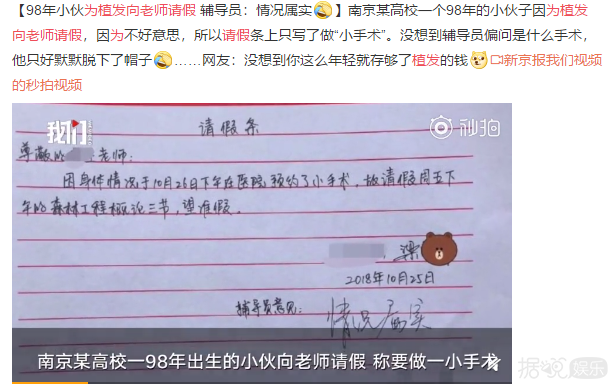 【98年小伙为植发向老师请假 辅导员：情况属实】南京某高校一个98年的小伙子因为植发
向老师请假，因为不好意思，所以请假条上只写了做“小手术”。没想到辅导员偏问是什么手术，
他只好默默脱下了帽子……网友：没想到你这么年轻就存够了植发的钱 新京报我们视频
的秒拍视频
我们
秒拍
请假条
尊敬的 老师：
因身体情况于10月26日下午在医院预约了小手术，故请假周五下
午的森林工程概论三节，望准假。
梁
2018年10月25日
辅导员意见：
情况属实
南京某高校一98年出生的小伙向老师请假 称要做一小手术
据说娱乐